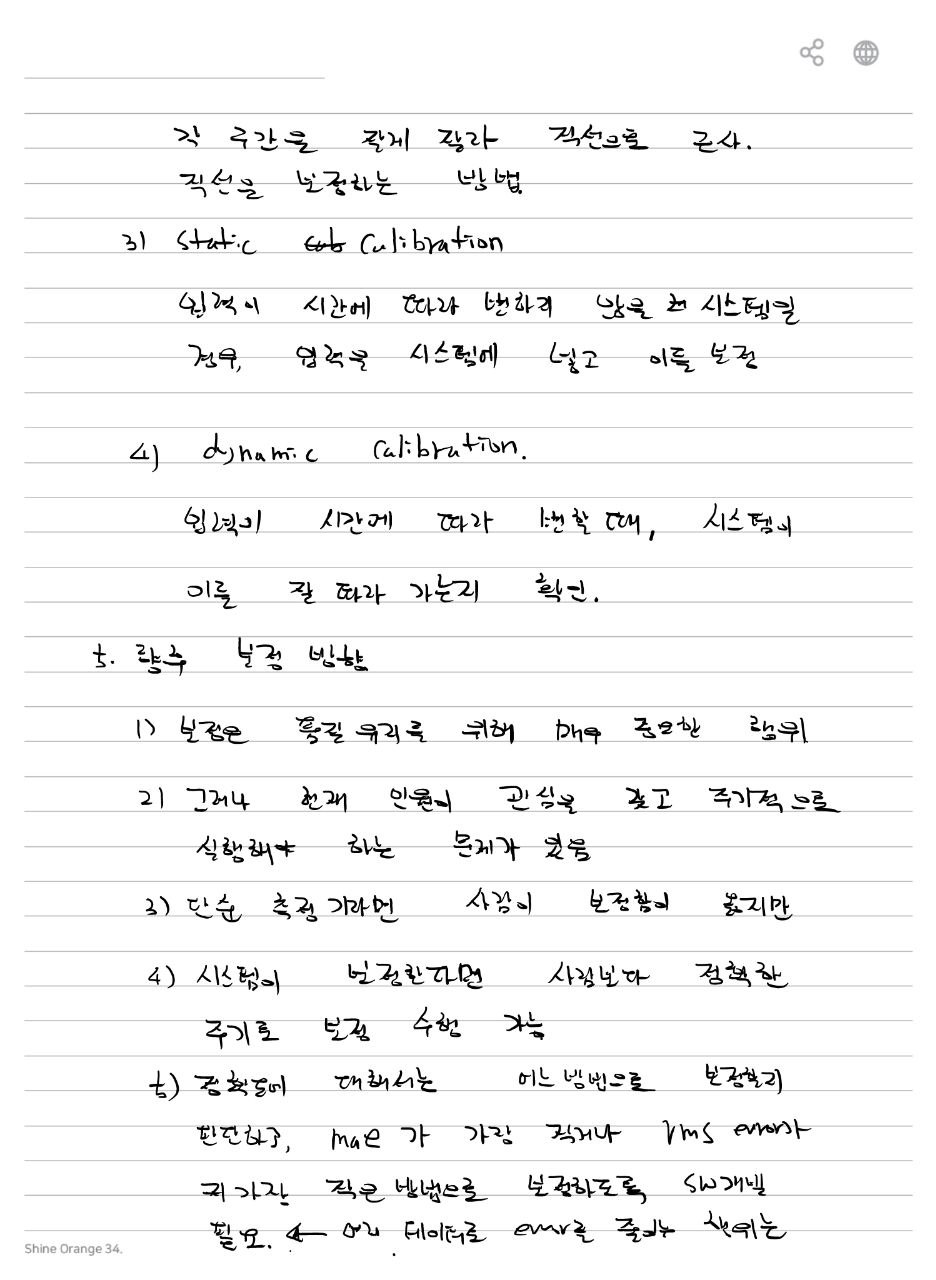 각 구간을 짧게 잘라 직선으로 근사.
직선을 보정하는 방법.
3) static calibration
입력이 시간에 따라 변하지 않을 시스템일
경우, 입력을 시스템에 넣고 이를 보정
4) dynamic calibration.
입력이 시간에 따라 변할 때, 시스템이
이를 잘 따라 가는지 확인.
5. 향후 보정 방향
1) 보정은 품질 유지를 위해 매우 중요한 행위
2) 그러나 현재 인원이 관심을 갖고 주기적으로
실행해야 하는 문제가 있음
3) 단순 측정기라면 사람이 보정함이 옳지만
4) 시스템이 보정한다면 사람보다 정확한
주기로 보정 수행 가능
5) 정확도에 대해서는 어느 방법으로 보정할지
판단하고, mae가 가장 적거나 rms error가
가장 작은 방법으로 보정하도록 SW개발
필요. ← 데이터로 error를 줄이는 행위는
Shine Orange 34.